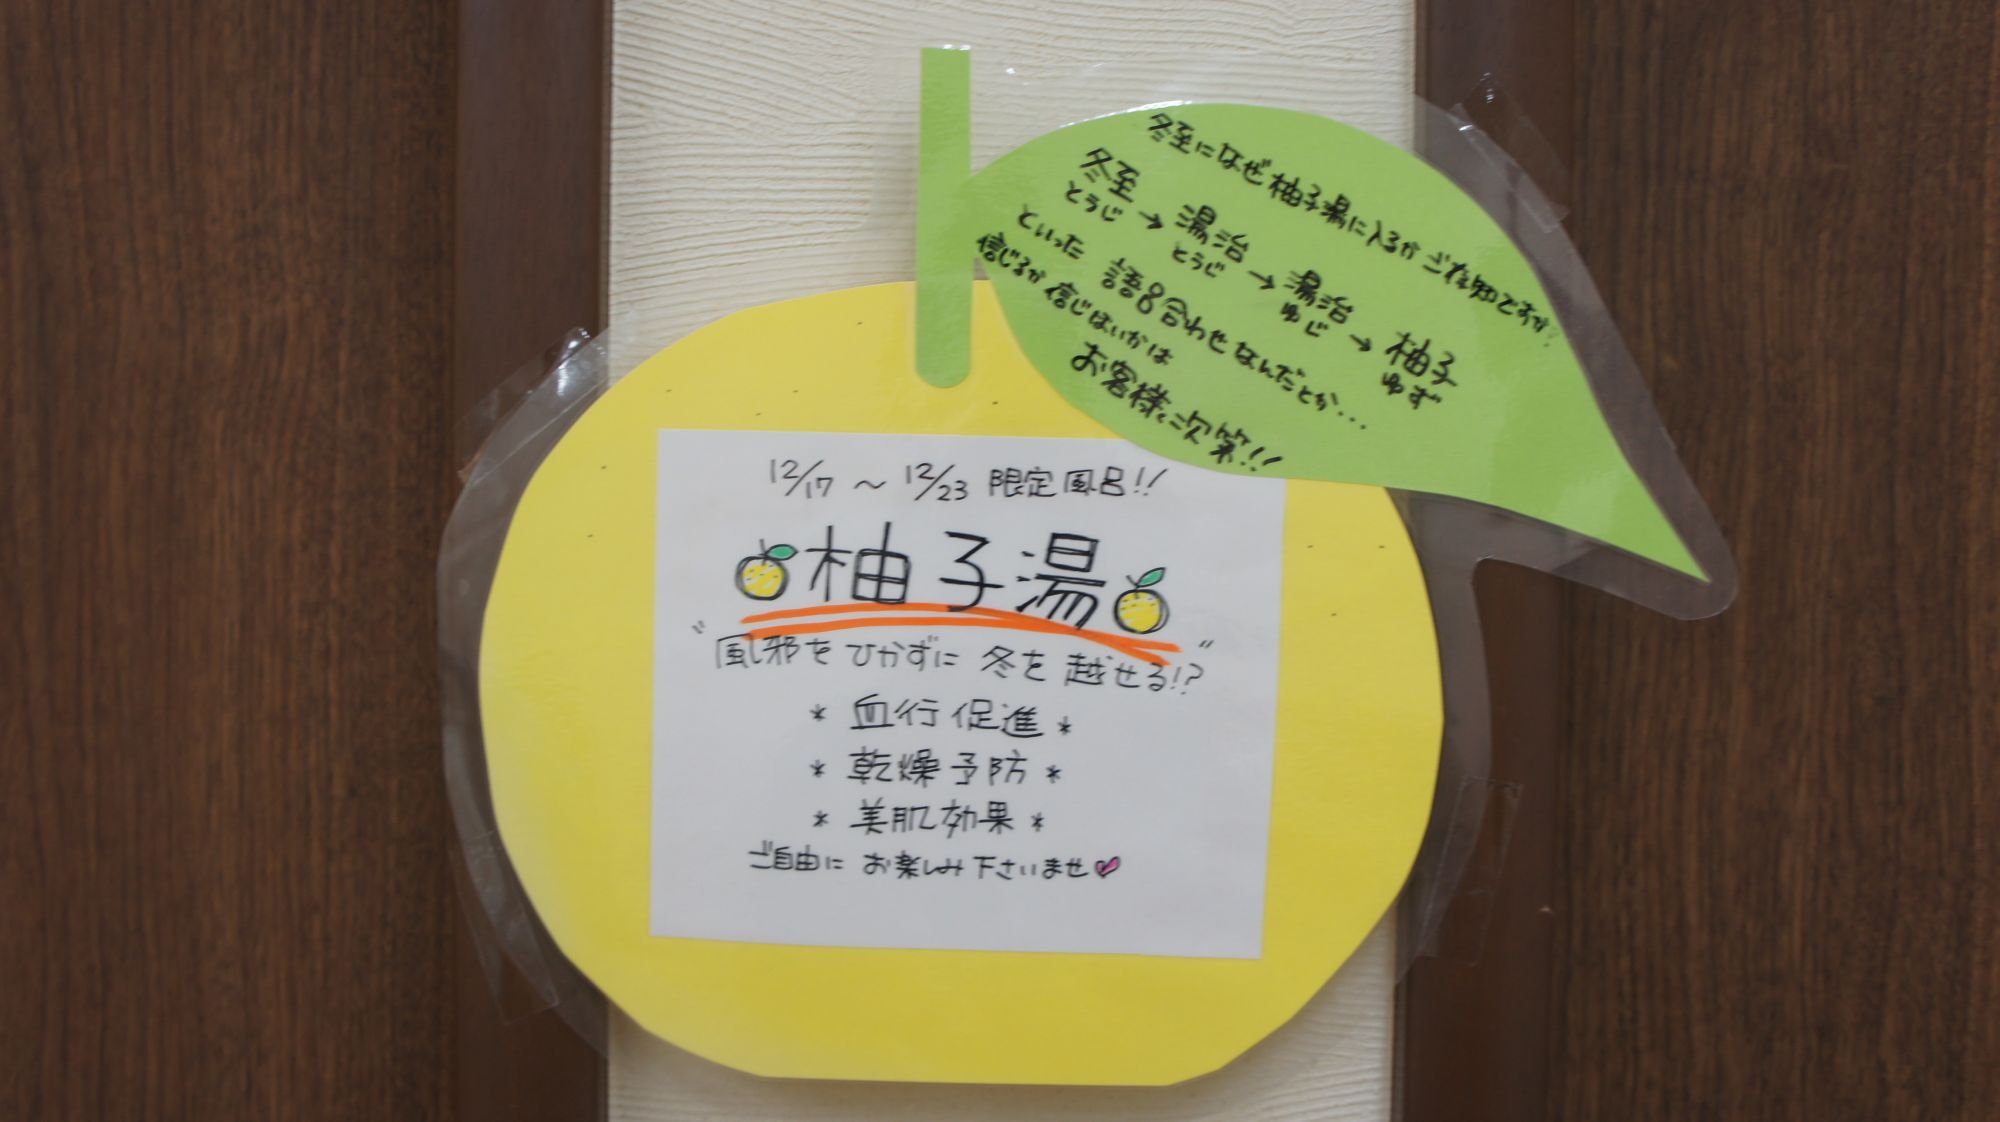 冬至になぜ柚子湯に入るかご存知ですか?
冬至→湯治→湯治→柚子
とうじ とうじ ゆじ ゆず
といった 語呂合わせなんだとか...
信じるか信じないかは
お客様次第!!
12/17 ~ 12/23 限定風呂!!
柚子湯
"風邪をひかずに 冬を 越せる!?"
* 血行促進 *
* 乾燥予防 *
* 美肌効果 *
ご自由に お楽しみ下さいませ♥